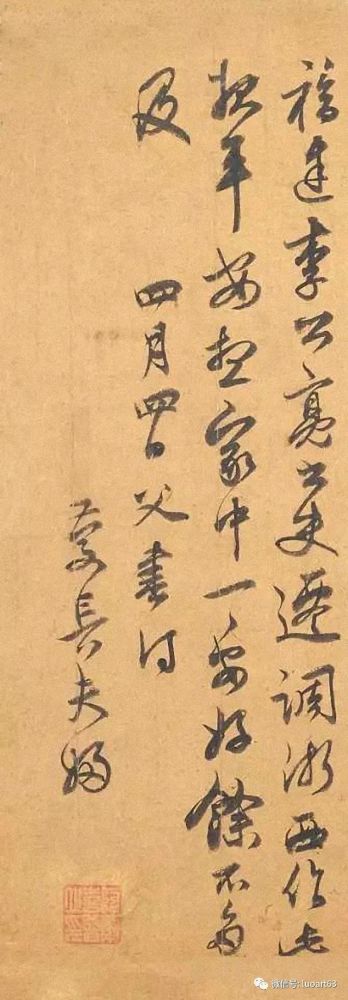 福建李公亮書吏遷調浙西作此
報平安想家中一一安好餘不多
及 四月四日父書付
慶長夫婦
微信号: luoart63